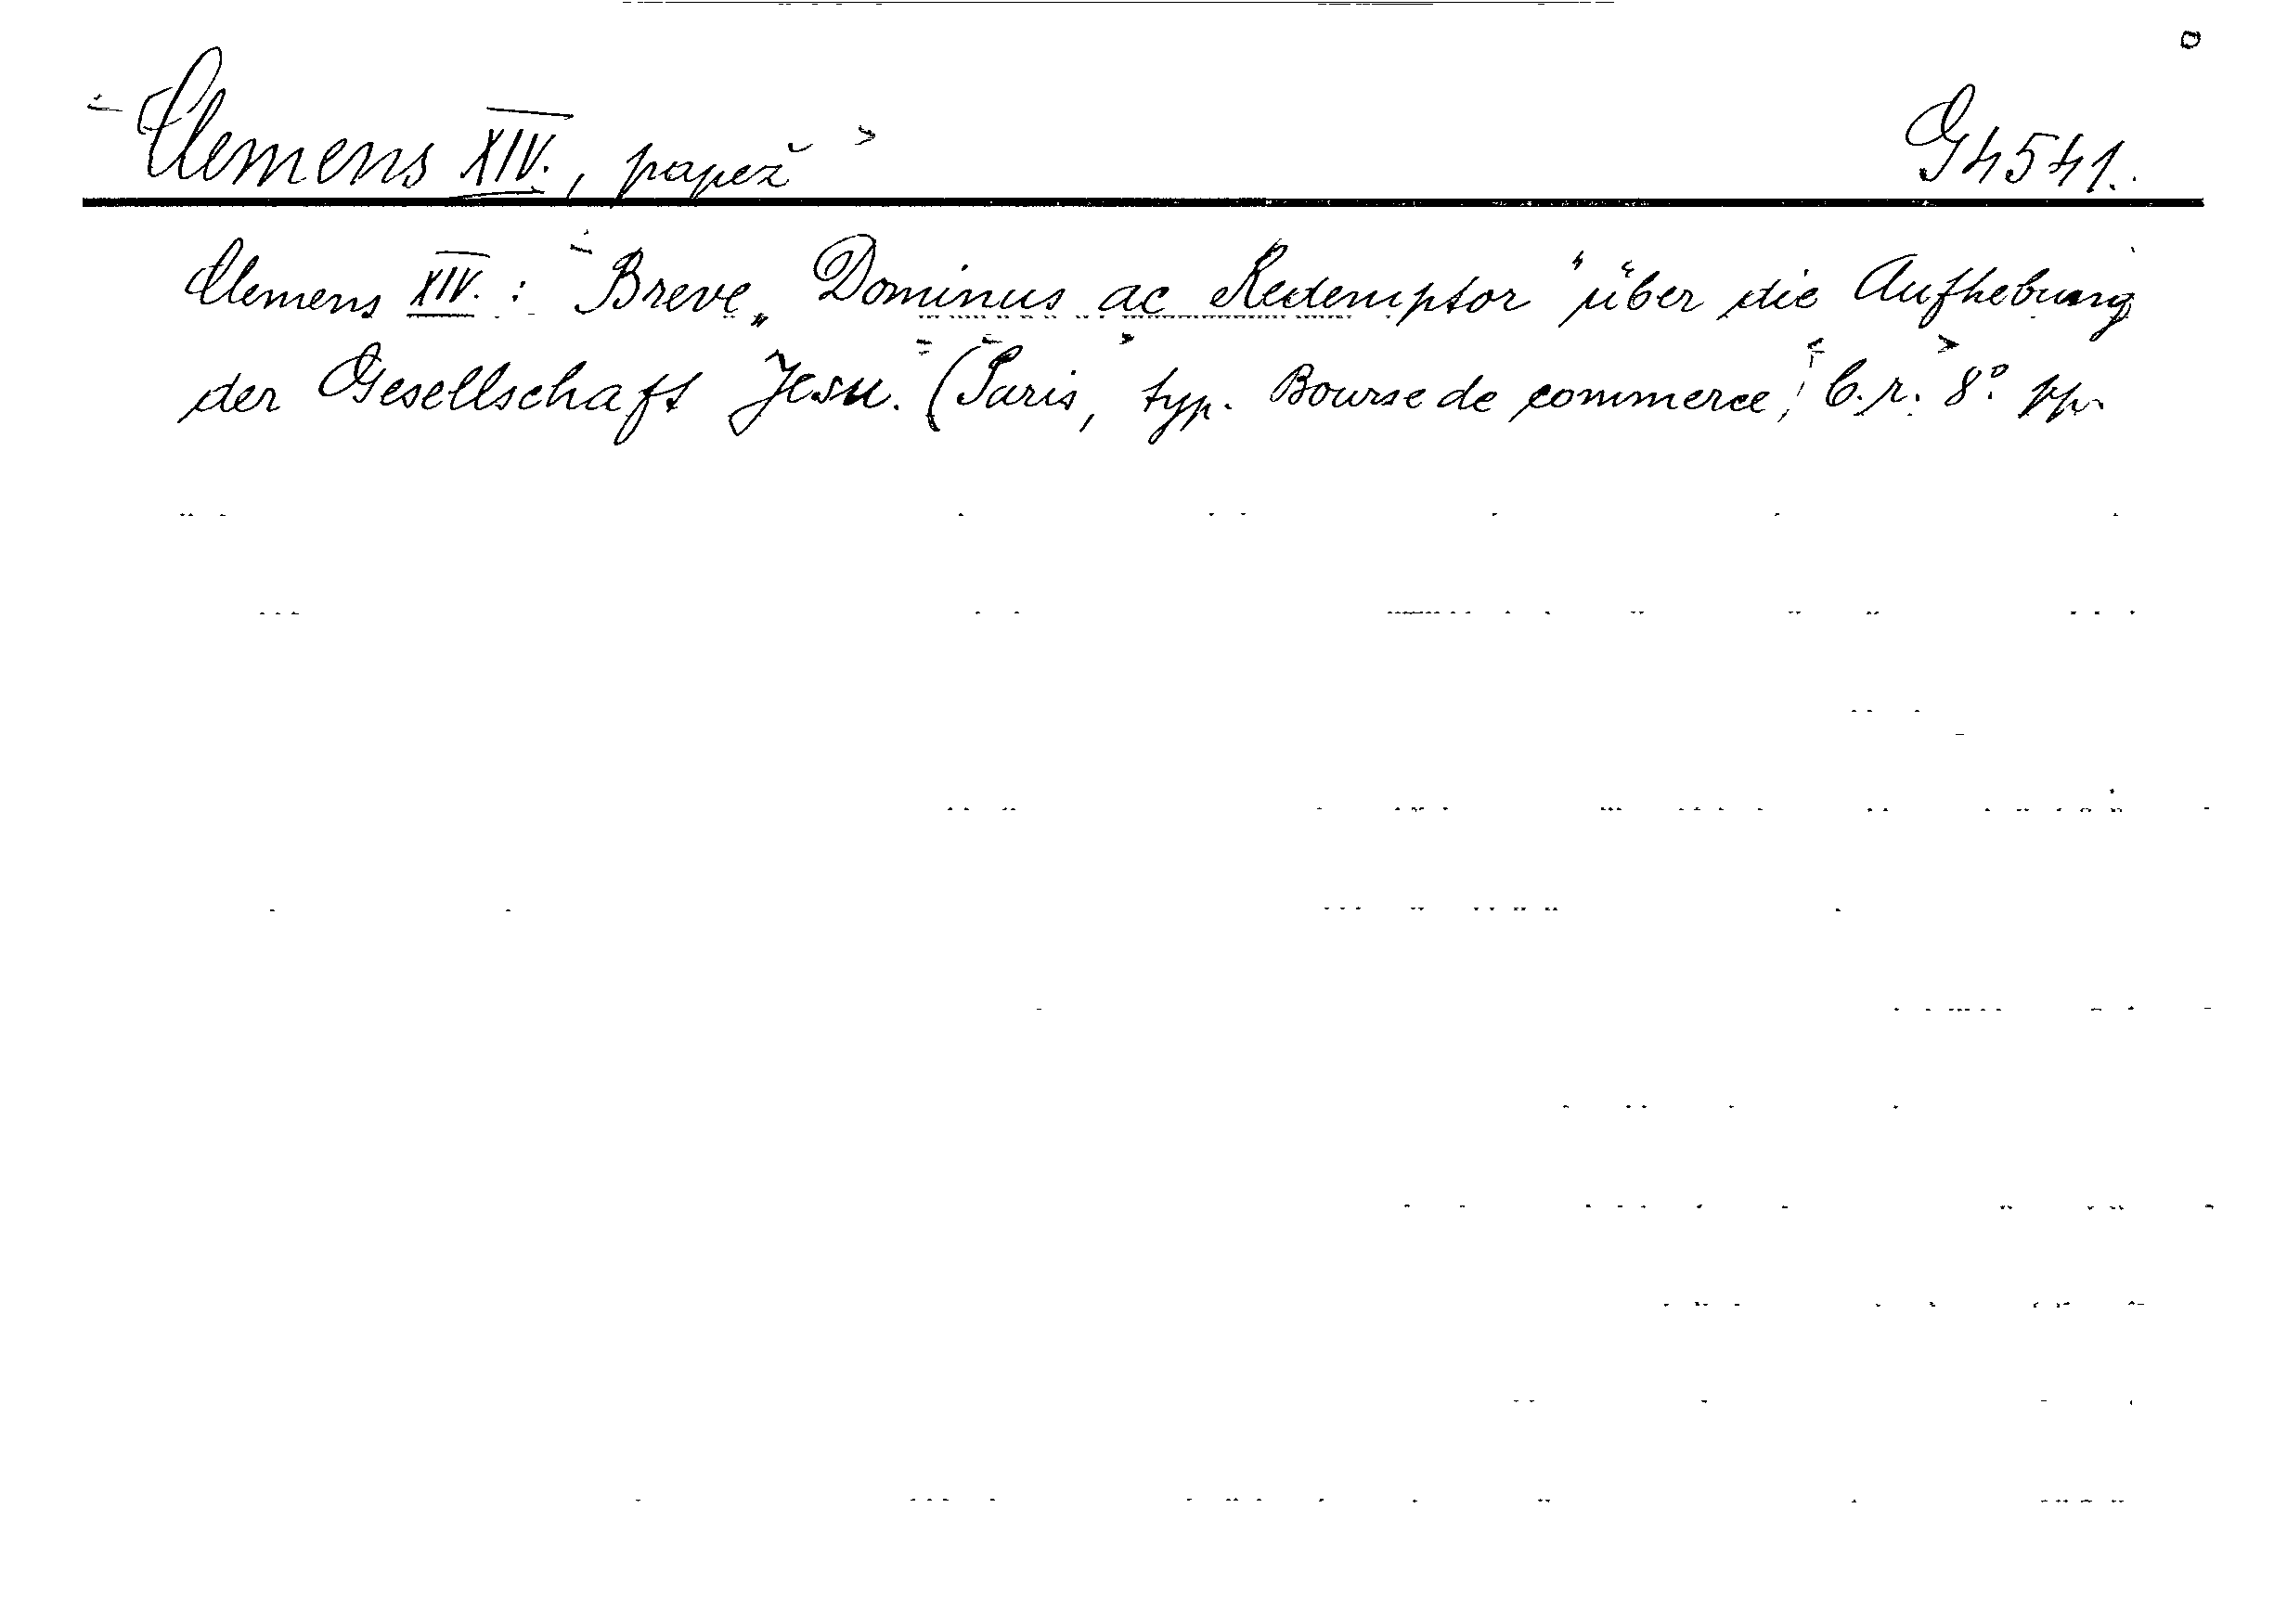 Clemens XIV., papež G4541.
Clemens XIV. : Breve „Dominus ac Redemptor" über die Aufhebung
der Gesellschaft Jesu. (Paris, typ. Bourse de commerce, b.r. 8°. pp.